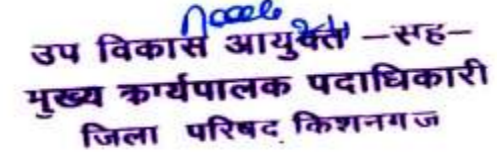 उप विकास आयुक्त –सह–
मुख्य कार्यपालक पदाधिकारी
जिला परिषद् किशनगज